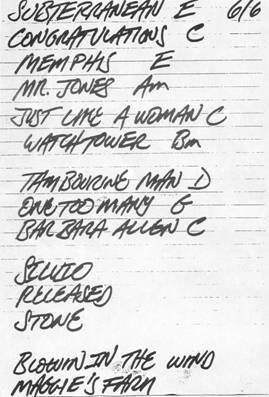 SUBTERRANEAN E 6/6
CONGRATULATIONS C
MEMPHIS E
MR. JONES Am
JUST LIKE A WOMAN C
WATCHTOWER Bm
TAMBOURINE MAN D
ONE TOO MANY G
BARBARA ALLEN C
SILVIO
RELEASED
STONE
BLOWIN IN THE WIND
MAGGIE'S FARM